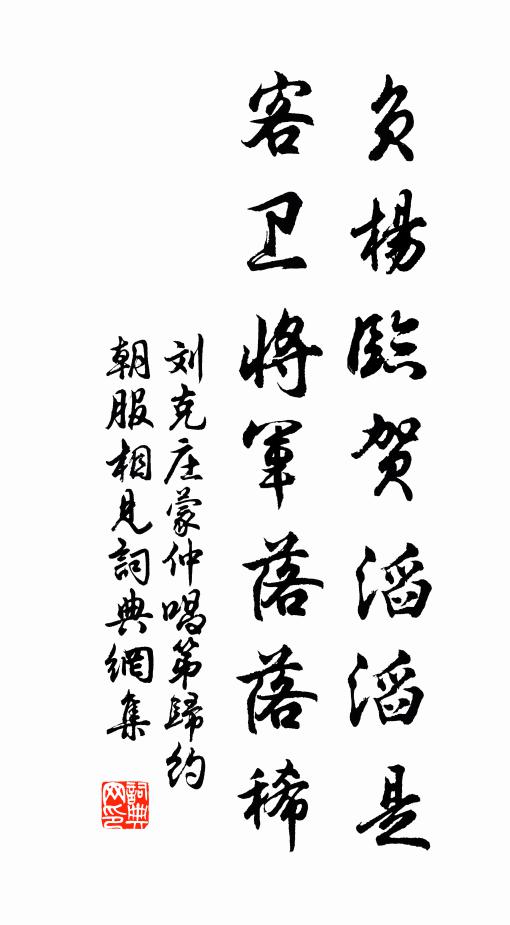 负楊臨贺滔滔是
客卫將軍落落稀
刘克庄蒙仲唱第歸约
朝服相見詞典網集
詞典网印